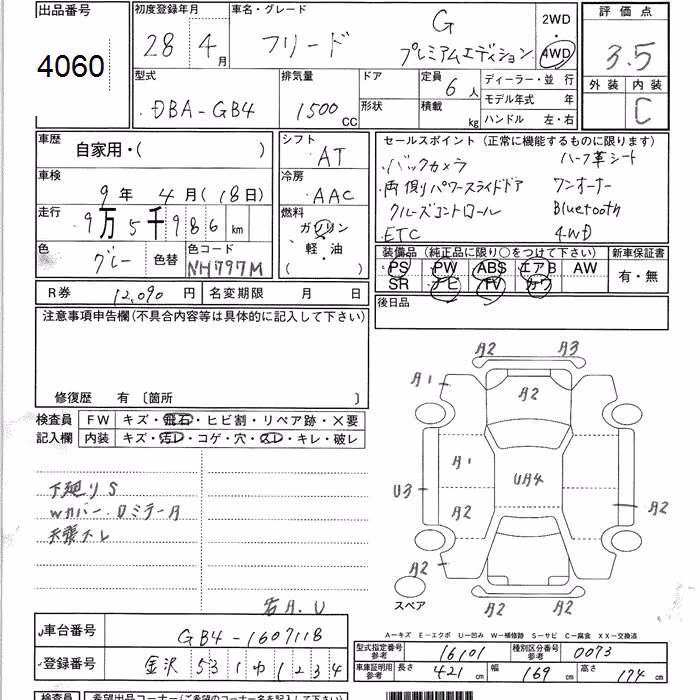 出品番号 4060
初度登録年月 28年 4月
車名・グレード フリード G プレミアムエディション
2WD 4WD
評価点 3.5
外装 内装 C
型式 DBA-GB4
排気量 1500 CC
ドア 形状
定員 6人 積載 kg
ディーラー・並 行
モデル年式 年
ハンドル 左・右
車歴 自家用・( )
シフト AT
車検 9年 4月(18日)
冷房 AAC
走行 9万5千986 km
燃料 ガソリン 軽・油 ( )
色 グレー 色替 色コード NH797M
R券 12,090 円 名変期限 月 日
セールスポイント(正常に機能するものに限ります)
バックカメラ ハーフ革シート
両側パワースライドドア ワンオーナー
クルーズコントロール Bluetooth
ETC 4WD
装備品(純正品に限り○をつけて下さい) 新車保証書
PS PW ABS エアB AW 有・無
SR ナビ TV カワ
後日品
注意事項申告欄(不具合内容等は具体的に記入して下さい)
修復歴 有 〔箇所 〕
検査員 FW キズ・飛石・ヒビ割・リペア跡・X要
記入欄 内装 キズ・汚レ・コゲ・穴・スレ・キレ・破レ
下廻りS
Wカバー、ロミラーA
天張スレ
A2 A3
A1 A2
A1
U3 UA4
A2 A2
A2 A2
スペア A2 A2
A-キズ E-エクボ U-凹み W-補修跡 S-サビ C-腐食 XX-交換済
車台番号 GB4-1607118
登録番号 金沢 531 わ 1234
型式指定番号 参考 16101 種別区分番号 参考 0073
車庫証明用 参考 長さ 421 cm 幅 169 cm 高さ 174 cm
検査員 希望出品コーナー(ご希望のコーナー名を記入して下さい)